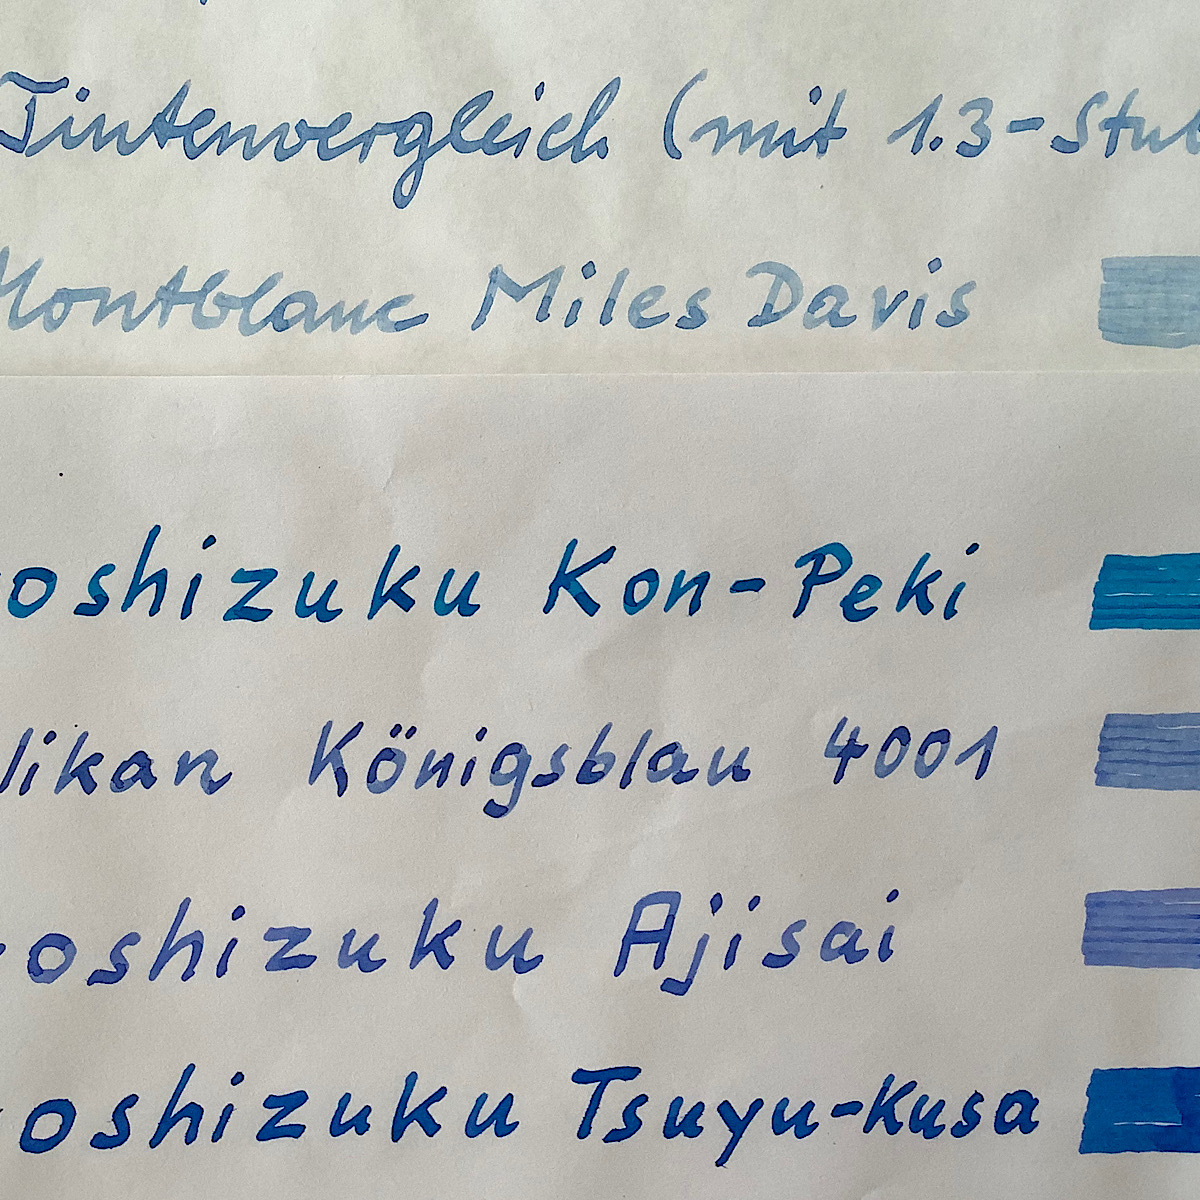 Tintenvergleich (mit 1.3-Stub
Montblanc Miles Davis
oshizuku Kon-Peki
likan Königsblau 4001
oshizuku Ajisai
oshizuku Tsuyu-Kusa